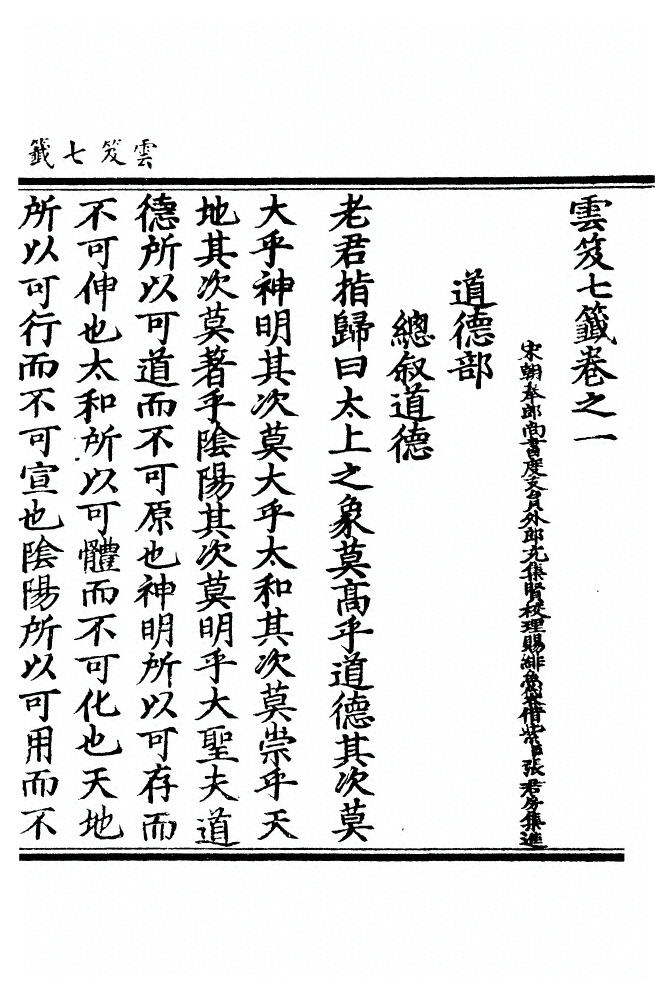 雲笈七籤
雲笈七籤卷之一
宋朝奉郎尚書度支員外郎充集賢校理賜緋魚袋借紫臣張君房集進
道德部
總叙道德
老君指歸曰太上之象莫髙乎道德其次莫
大乎神明其次莫大乎太和其次莫崇乎天
地其次莫著乎隂陽其次莫明乎大聖夫道
德所以可道而不可原也神明所以可存而
不可伸也太和所以可體而不可化也天地
所以可行而不可宣也隂陽所以可用而不